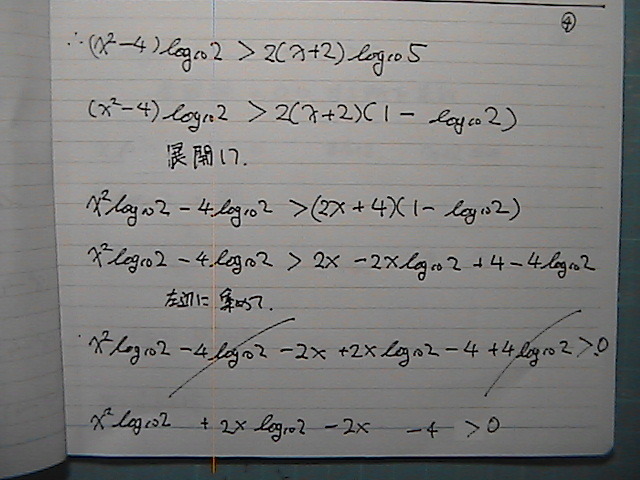 ④
∴(x²-4)log₁₀2 > 2(x+2)log₁₀5
(x²-4)log₁₀2 > 2(x+2)(1-log₁₀2)
展開して.
x²log₁₀2 - 4log₁₀2 > (2x+4)(1-log₁₀2)
x²log₁₀2 - 4log₁₀2 > 2x - 2xlog₁₀2 + 4 - 4log₁₀2
左辺に集めて.
x²log₁₀2 - 4log₁₀2 - 2x + 2xlog₁₀2 - 4 + 4log₁₀2 > 0
x²log₁₀2 + 2xlog₁₀2 - 2x - 4 > 0